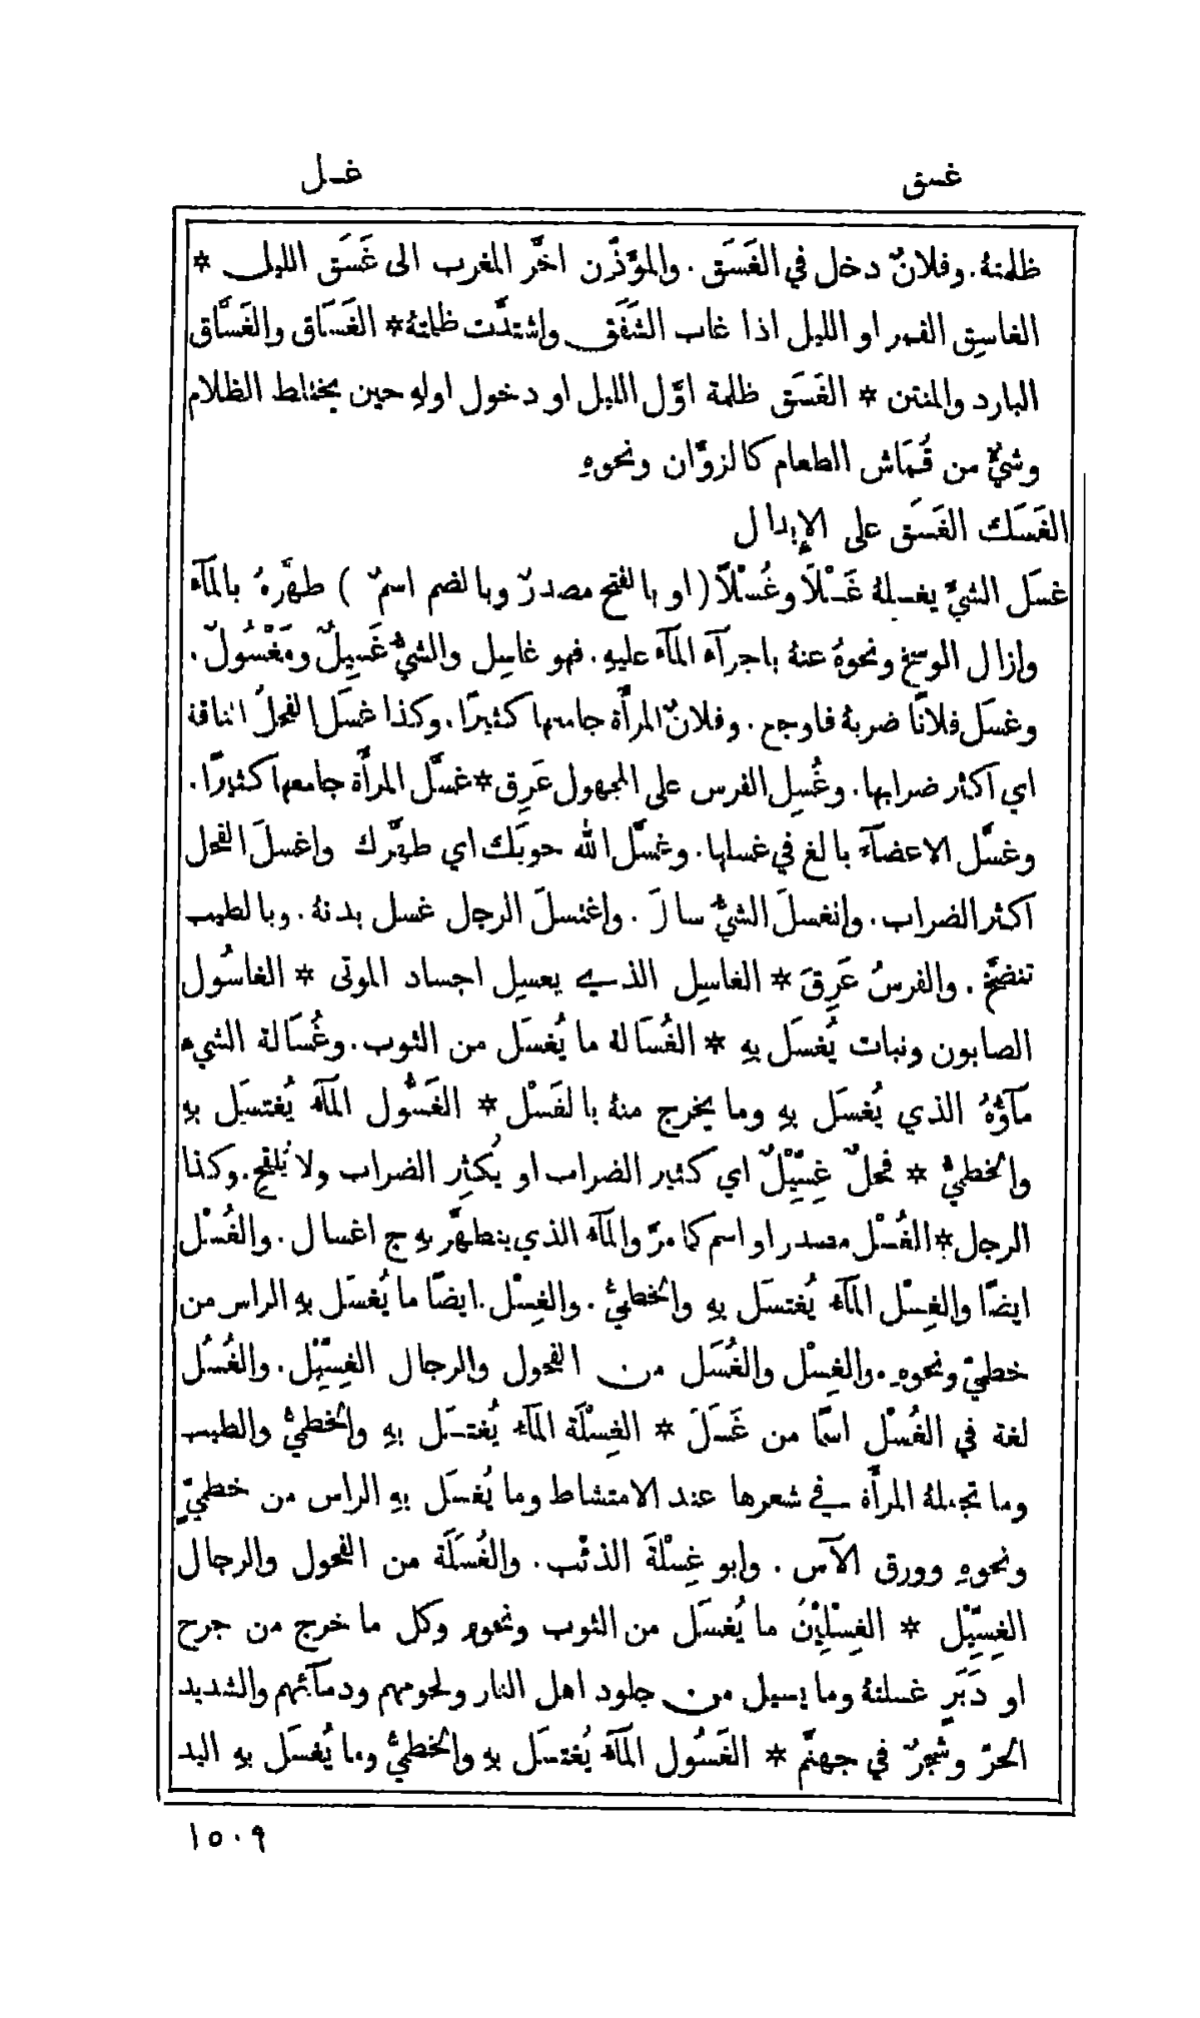 غسق
غسل
ظلمتهُ. وفلانٌ دخل في الغَسَق. والمؤَذّن اخَّر المغرب الى غَسَق الليل *
الغاسِق القمر او الليل اذا غاب الشَفَق واشتدَّت ظلمتهُ* الغَسَاق والغَسَّاق
البارد والمنتن * الغَسَق ظلمة اوَّل الليل او دخول اولهِ حين يختلط الظلام
وشيءٌ من قُمَاش الطعام كالزوَّان ونحوهِ
الغَسَك الغَسَق على الإبدال
غسَل الشيَّ يغسِلهُ غَسْلًا وغُسْلًا (او بالفتح مصدرٌ وبالضم اسمٌ ) طهَّرهُ بالمآء
وازال الوسخ ونحوهُ عنهُ باجرآء المآء عليهِ. فهو غاسِل والشيُّ غَسِيلٌ ومَغْسُولٌ.
وغسَل فلانًا ضربهُ فاوجع. وفلانٌ المرأَة جامعها كثيرًا. وكذا غسَل الفحلُ الناقة
اي اكثر ضرابها. وغُسِل الفرس على المجهول عَرِق* غسَّل المرأَة جامعها كثيرًا.
وغسَّل الاعضآءَ بالغ في غسلها. وغسَّل الله حوبَك اي طهَّرك واغسلَ الفحل
اكثر الضراب. وانغسلَ الشيُّ سالَ. واغتسلَ الرجل غسل بدنهُ. وبالطيب
تنضَّخ. والفرسُ عَرِقَ * الغاسِل الذي يغسِل اجساد الموتى * الغاسُول
الصابون ونبات يُغسَل بهِ * الغُسَالة ما يُغسَل من الثوب. وغُسَالة الشيء
مآؤُهُ الذي يُغسَل بهِ وما يخرج منهُ بالغَسْل * الغَسُّول المآءُ يُغتسَل بهِ
والخطميُّ * فحلٌ غِسِّيْلٌ اي كثير الضراب او يُكثِر الضراب ولا يُلقِح. وكذا
الرجل* الغُسْل مصدر او اسم كما مرَّ والمآءُ الذي يتطهَّر بهِ ج اغسال. والغُسْل
ايضًا والغِسْل المآءُ يُغتسَل بهِ والخطميُّ. والغِسْل. ايضًا ما يُغسَل بهِ الراس من
خطميّ ونحوهِ. والغِسْل والغُسَل من الفحول والرجال الغِسِّيْل. والغُسُل
لغة في الغُسْل اسمًا من غَسَلَ * الغِسْلَة المآءُ يُغتسَل بهِ والخطميُّ والطيب
وما تجعلهُ المرأَة في شعرها عند الامتشاط وما يُغسَل بهِ الراس من خطميّ
ونحوهِ وورق الآس. وابو غِسْلةَ الذئب. والغُسَلَة من الفحول والرجال
الغِسِّيْل * الغِسْلِيْنُ ما يُغسَل من الثوب ونحوهِ وكل ما خرج من جرح
او دَبَرٍ غسلتهُ وما يسيل من جلود اهل النار ولحومهم ودمآئهم والشديد
الحرّ وشجرٌ في جهنَّم * الغَسُول المآءُ يُغتسَل بهِ والخطميُّ وما يُغسَل بهِ اليد
١٥٠٩